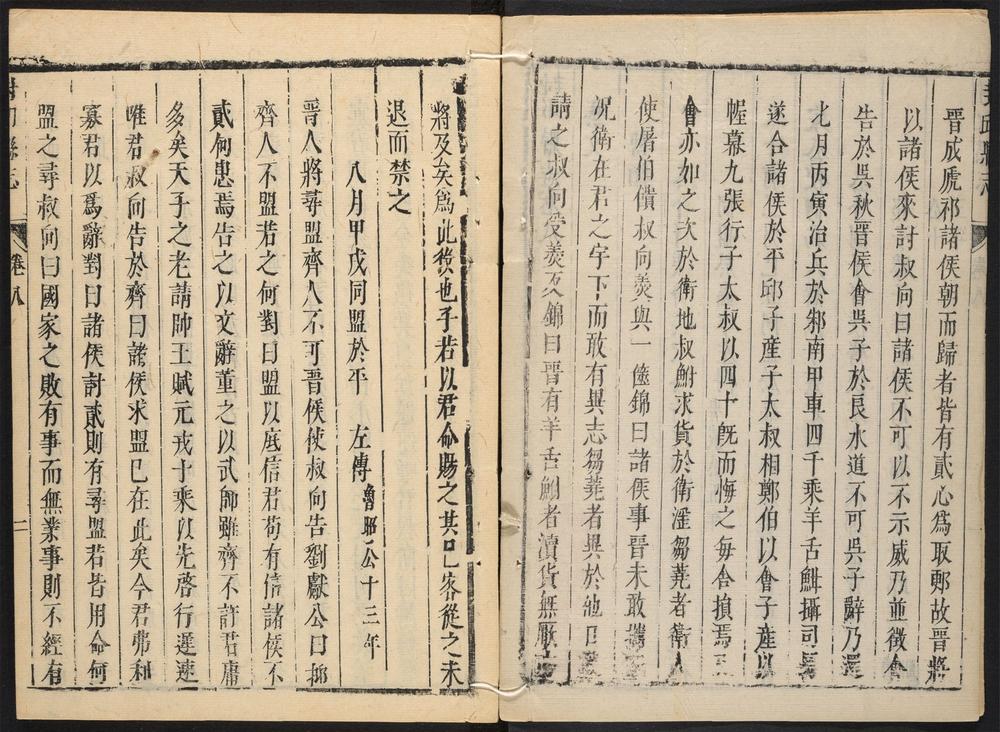 晉成虒祁諸侯朝而歸者皆有貳心爲取郠故晉將
以諸侯來討叔向曰諸侯不可以不示威乃並徵會
告於吳秋晉侯會吳子於良水道不可吳子辭乃還
七月丙寅治兵於邾南甲車四千乘羊舌鮒攝司馬
遂合諸侯於平邱子產子太叔相鄭伯以會子產以
幄幕九張行子太叔以四十旣而悔之每舍損焉
會亦如之次於衛地叔鮒求貨於衛滛芻蕘者衛人
使屠伯饋叔向羮與一篋錦曰諸侯事晉未敢攜
况衛在君之宇下而敢有異志芻蕘者異於他日
請之叔向受羮反錦曰晉有羊舌鮒者瀆貨無厭
將及矣爲此役也子若以君命賜之其已客從之未
退而禁之
八月甲戌同盟於平 左傳魯昭公十三年
晉人將尋盟齊人不可晉侯使叔向告劉獻公曰抑
齊人不盟若之何對曰盟以底信君苟有信諸侯不
貳何患焉告之以文辭董之以武師雖齊不許君庸
多矣天子之老請帥王賦元戎十乘以先啓行遲速
唯君叔向告於齊曰諸侯求盟已在此矣今君弗利
寡君以爲辭對曰諸侯討貳則有尋盟若皆用命何
盟之尋叔向曰國家之敗有事而無業事則不經有
卷八
二